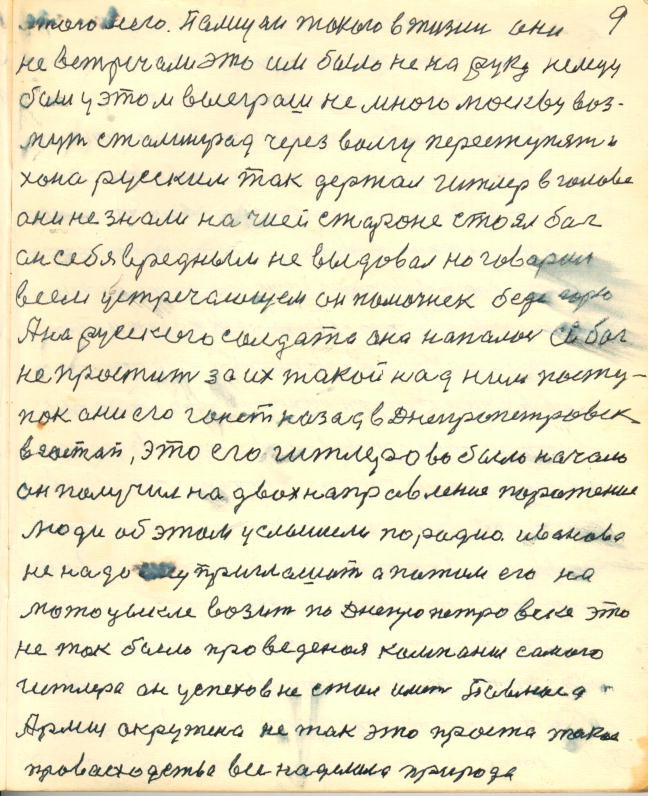 9
этого всего. Памцами такого в жизни они
не встричали это им было не на руку немцу
был у этом выеграш не много москву воз-
мут сталинград через волгу переступят и
хона русским так держал гитлер в голове
они не знали на чией староне стоял бог
он себя вредным не выдовал но говарил
всем устречающем он помочнек беде горю
А на русского солдата она напалов бог
не простит за их такой над ним посту-
пок они его гонет назад в Днепропетровск
в зотоп, это его гитлерово было начало
он получил на двох направление поражение
люди об этом услышели по радио иванова
не надо приглошат а потом его на
мотоцыкле возит по Днепропетровске это
не так было проведеноя компания самого
гитлера он успехов не стал имет Павлюса
Армия окружена не так это проста такое
провасходства все наделила природа